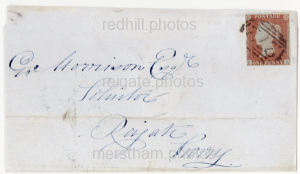 redhill.photos
POSTAGE
Geo Morrison Esqr
ONE PENNY
reigate.photos
Solicitor
Reigate
Surrey
merstham.photos